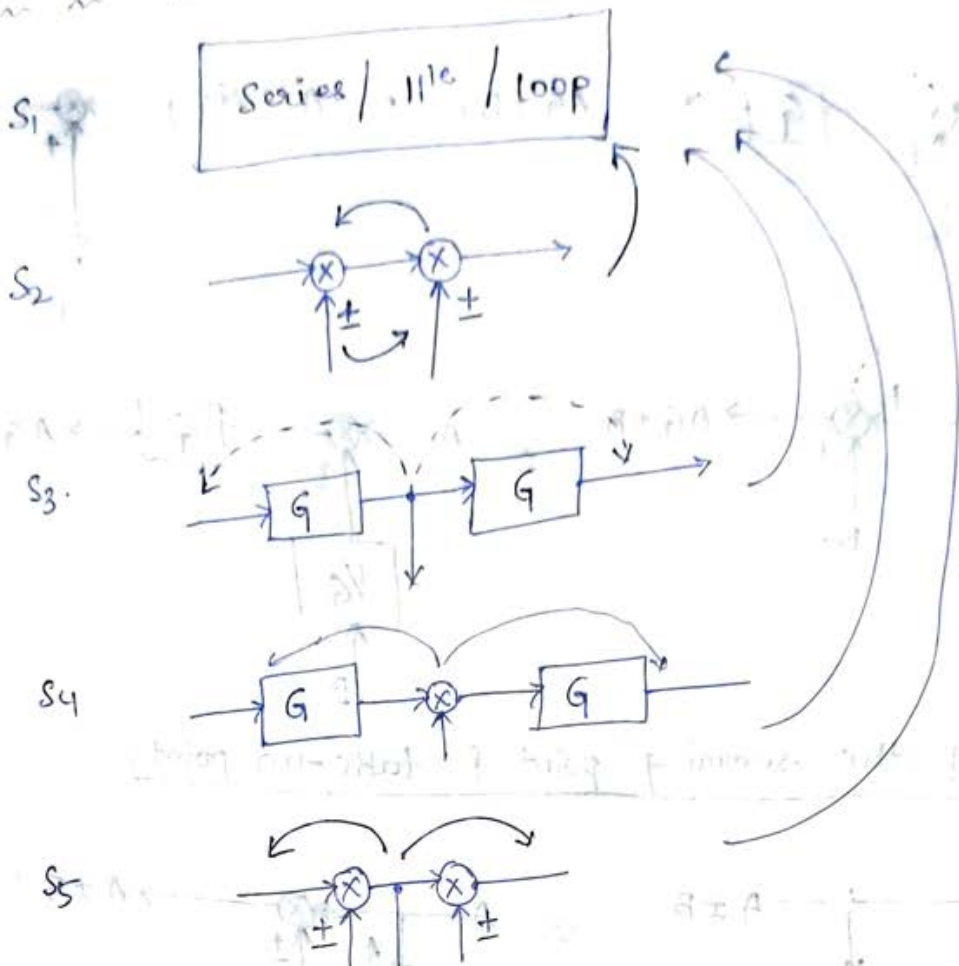 S1 Series / 11le / loop
S2
± ±
S3.
G G
S4
G G
S5
± ±